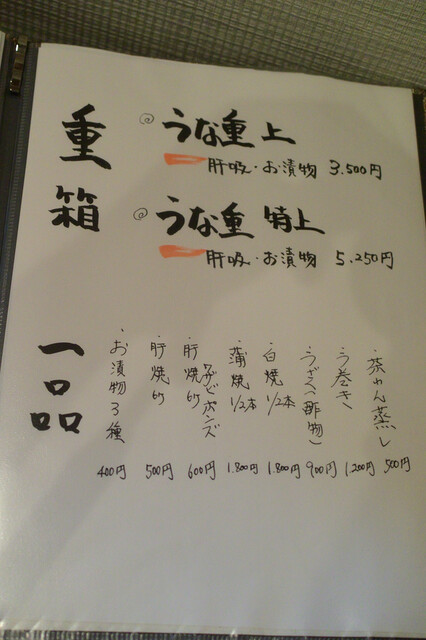 重箱
@うな重 上
肝吸・お漬物 3.500円
@うな重 特上
肝吸・お漬物 5.250円
一品
・茶わん蒸し 500円
・う巻き 1.200円
・うざく(酢物) 900円
・白焼 1/2本 1.800円
・蒲焼 1/2本 1.800円
・肝焼 ポンズ 600円
・肝焼 500円
・お漬物3種 400円